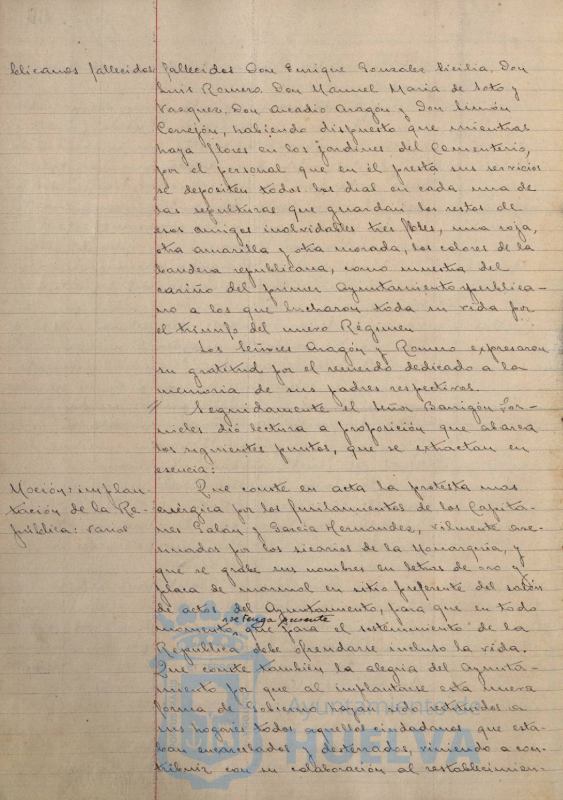 blicanos fallecidos
fallecidos Don Enrique Gonzalez Cicilia, Don
Luis Romero, Don Manuel Maria de Soto y
Vazquez, Don Arcadio Aragón y Don Simón
Cerrejón, habiendo dispuesto que mientras
haya flores en los jardines del Cementerio,
por el personal que en él presta sus servicios
se depositen todos los dias en cada una de
las sepulturas que guardan los restos de
esos amigos inolvidables tres flores, una roja,
otra amarilla y otra morada, los colores de la
bandera republicana, como muestra del
cariño del primer Ayuntamiento republica-
no a los que lucharon toda su vida por
el triunfo del nuevo Régimen
Los Señores Aragón y Romero expresaron
su gratitud por el recuerdo dedicado a la
memoria de sus padres respectivos.
Seguidamente el Señor Barrigón For-
nieles dió lectura a proposición que abarca
los siguientes puntos, que se extractan en
esencia:
Moción: implan-
tación de la Re-
pública: varios
Que conste en acta la protesta mas
enérgica por los fusilamientos de los Capita-
nes Galán y Garcia Hernandez, vilmente ase-
sinados por los sicarios de la Monarquía, y
que se grabe sus nombres en letras de oro y
placa de marmol en sitio preferente del salón
de actos del Ayuntamiento, para que en todo
momento se tenga presente que para el sostenimiento de la
Republica debe ofrendarse incluso la vida.
Que conste también la alegria del Ayunta-
miento por que al implantarse esta nueva
forma de Gobierno hayan sido restituidos a
sus hogares todos aquellos ciudadanos que esta-
ban encarcelados y desterrados, viniendo a con-
tribuir con su colaboración al restablecimien-
Ayuntamiento de
HUELVA